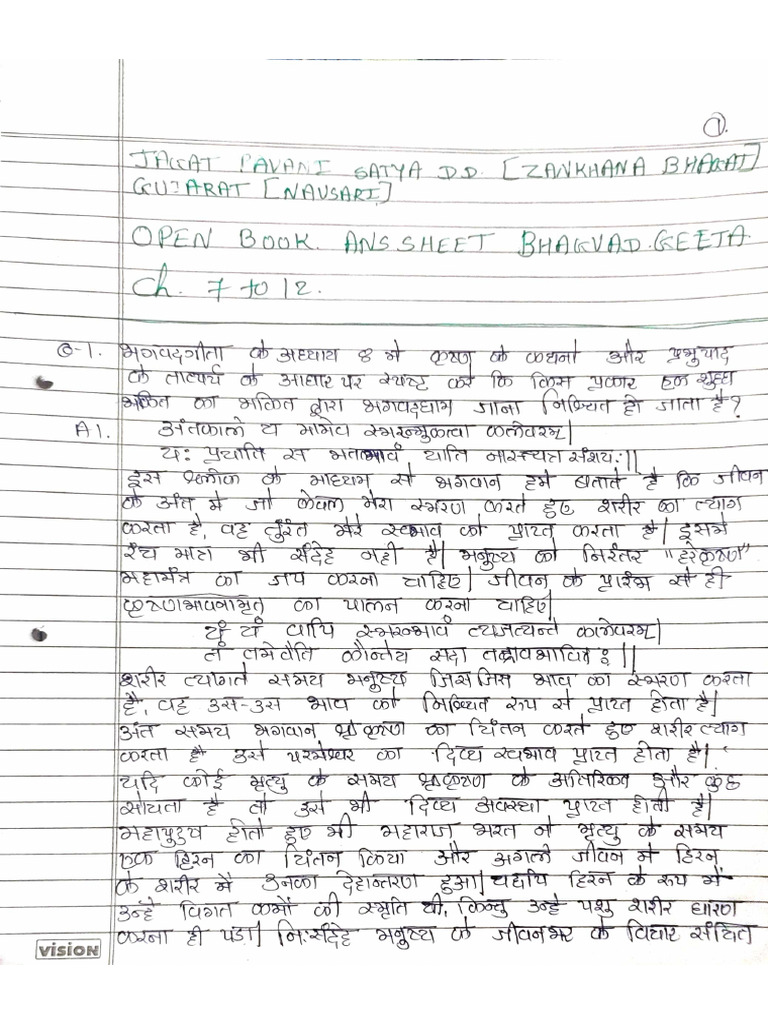 ①.
JAGAT PAVANI SATYA D.D. [ZANKHANA BHAGAT]
GUJARAT [NAVSARI]
OPEN BOOK ANS.SHEET BHAGVAD.GEETA
Ch. 7 to 12.
Q-1. भगवदगीता के अध्याय 8 मे कृष्ण के कथनो और प्रभुपाद
के तात्पर्य के आधार पर स्पष्ट करे कि किस प्रकार एक शुध्ध
भक्ति का भक्ति द्वारा भगवदधाम जाना निश्चित हो जाता है?
A1. अंतकाले य मामेव स्मरन्मुकत्वा कलेवरम्।
यः प्रयाति स मतभावं याति नास्त्यत्र संशयः।।
इस श्लोक के माध्यम से भगवान हमे बताते है कि जीवन
के अंत मे जो केवल मेरा स्मरण करते हुए शरीर का त्याग
करता है, वह तुंरत मेरे स्वभाव को प्राप्त करता है। इसमे
रंच मात्र भी संदेह नही है। मनुष्य को निरंतर "हरेकृष्ण"
महामंत्र का जप करना चाहिए। जीवन के प्रारंभ से ही
कृष्णभावनामृत का पालन करना चाहिए।
यं यं वापि स्मरन्भावं त्यजत्यन्ते कालेवरम्।
तं तमेवैति कौन्तेय सदा तद्भावभावितः।।
शरीर त्यागते समय मनुष्य जिस जिस भाव का स्मरण करता
है, वह उस-उस भाव को निश्चित रूप से प्राप्त होता है।
अंत समय भगवान श्रीकृष्ण का चिंतन करते हुए शरीर त्याग
करता है उसे परमेश्वर का दिव्य स्वभाव प्राप्त होता है।
यदि कोई मृत्यु के समय श्रीकृष्ण के अतिरिक्त और कुछ
सोचता है तो उसे भी दिव्य अवस्था प्राप्त होती है।
महापुरुष होते हुए भी महाराज भरत ने मृत्यु के समय
एक हिरन का चिंतन किया और अगले जीवन मे हिरन
के शरीर में उनका देहान्तरण हुआ। यद्यपि हिरन के रूप में
उन्हे विगत कर्मो की स्मृति थी, किन्तु उन्हे पशु शरीर धारण
करना ही पडा। निःसंदेह मनुष्य के जीवनभर के विचार संचित
VISION